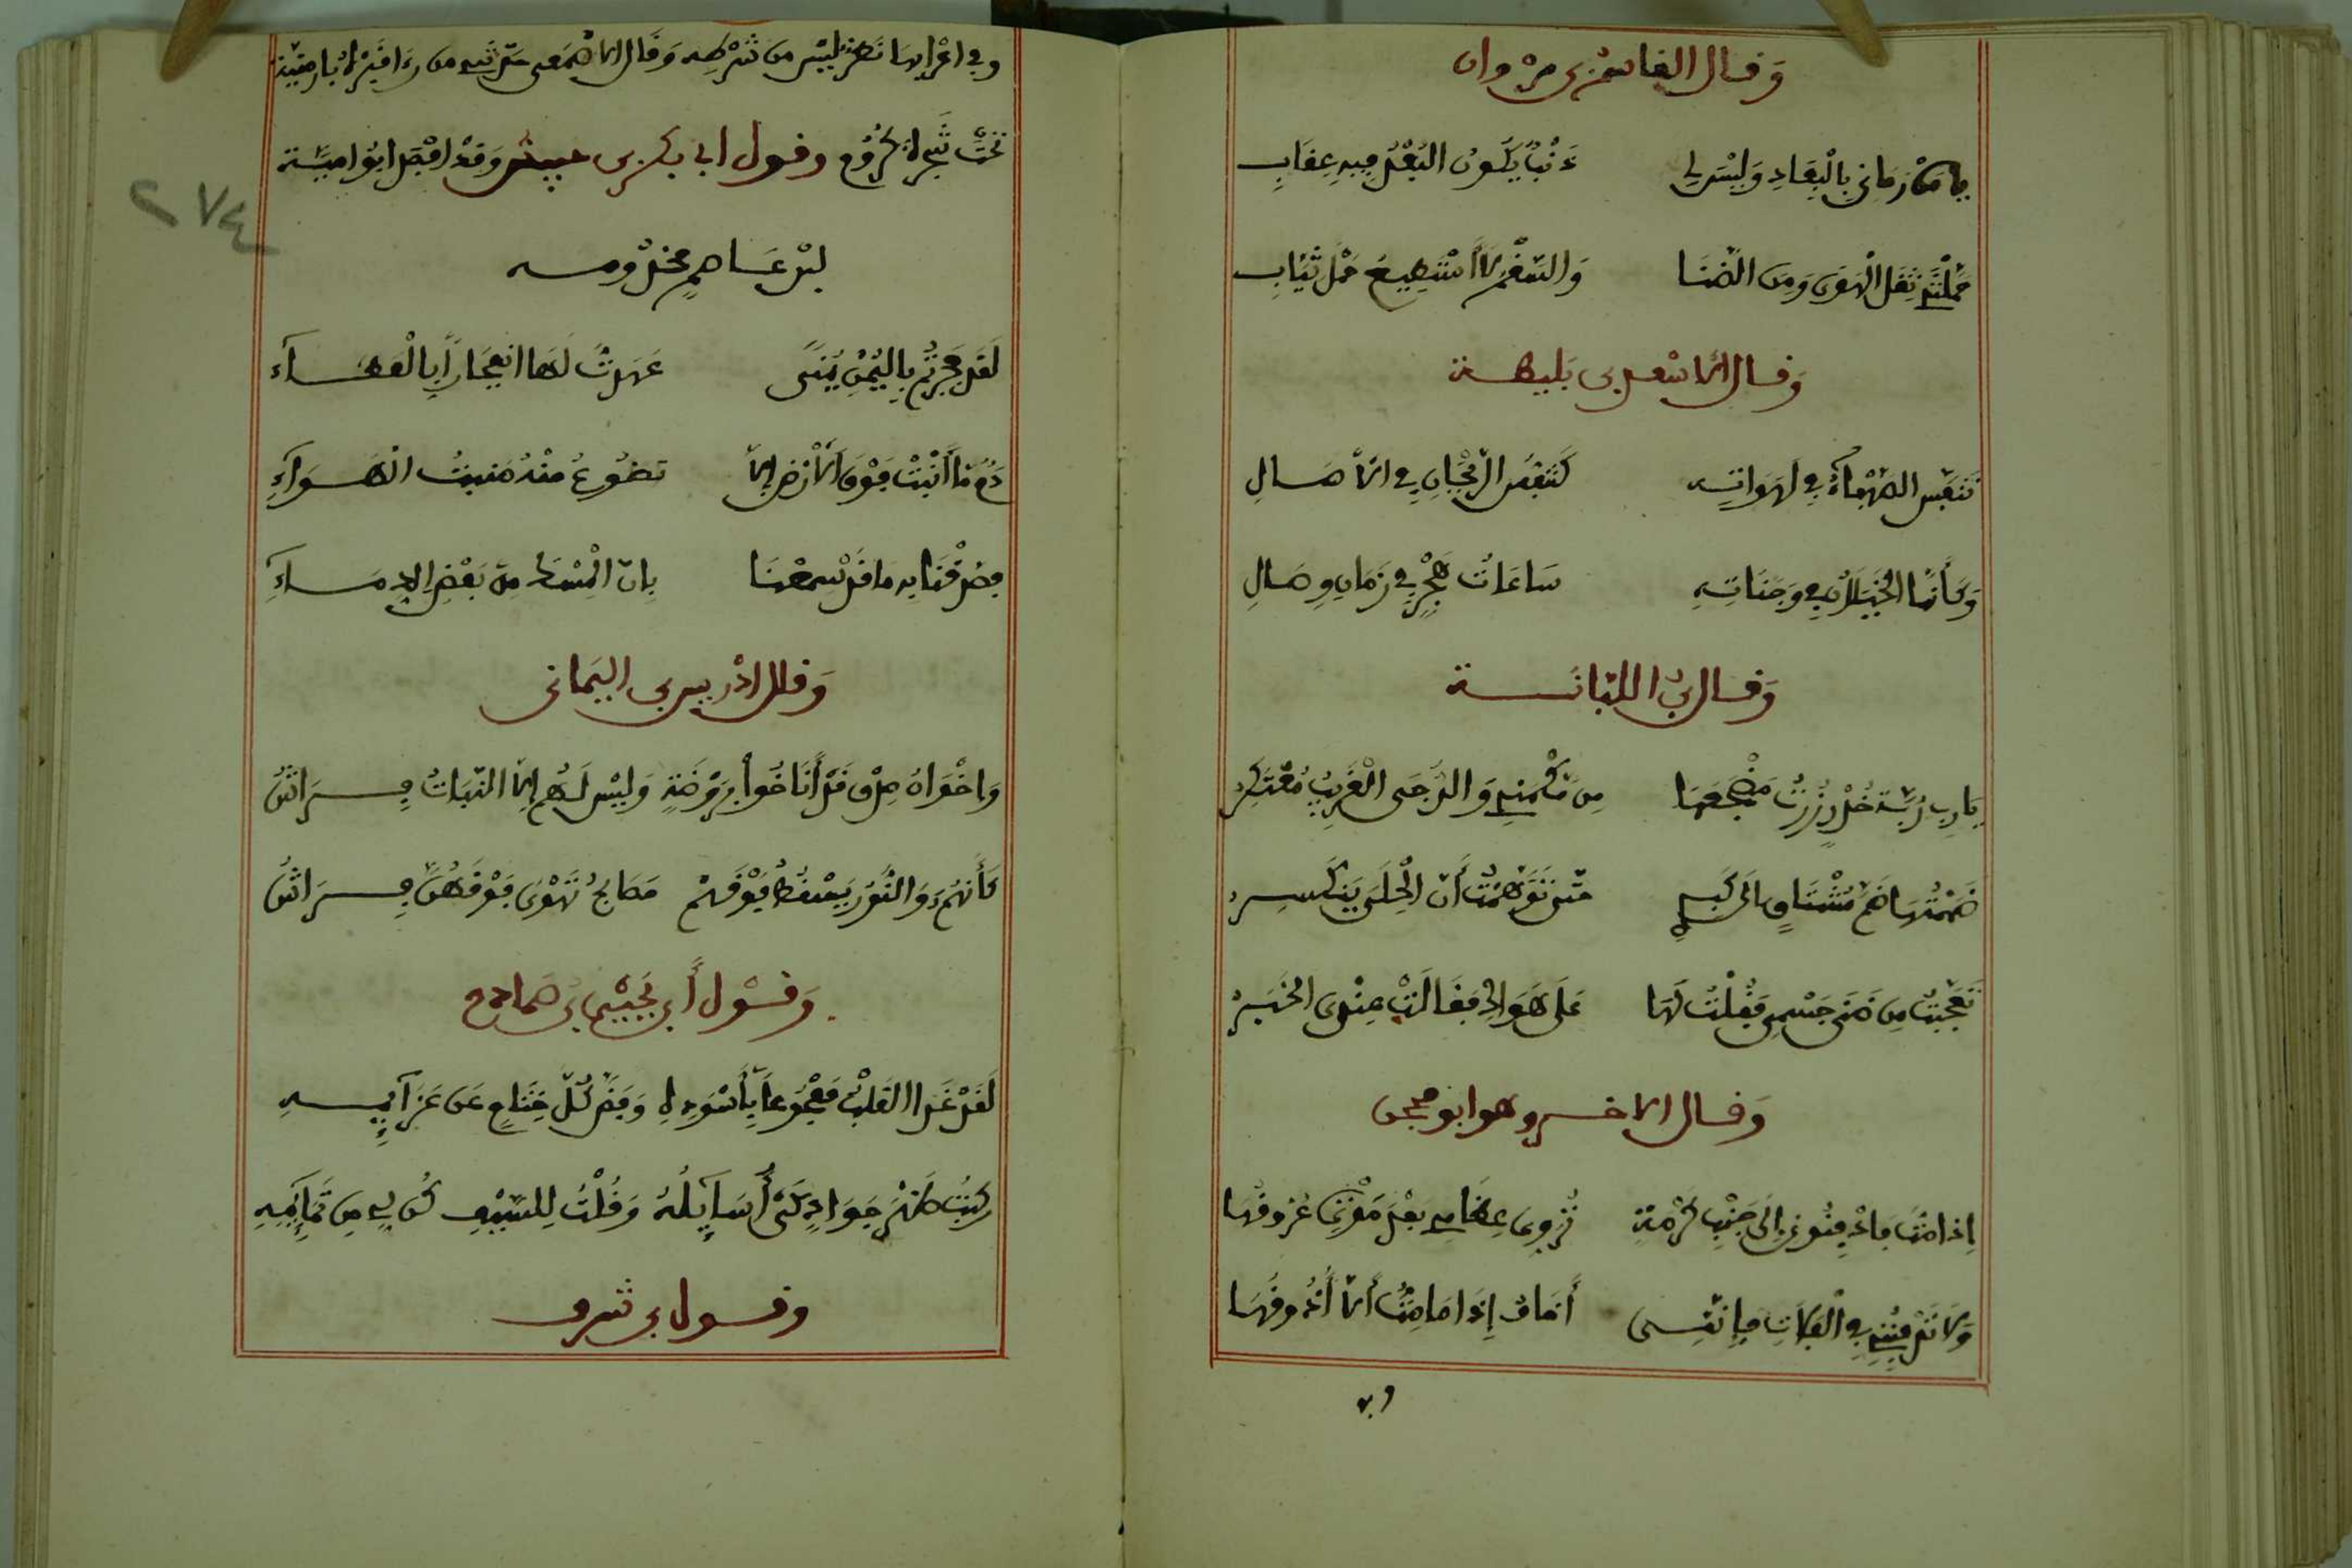 وقال القاسم بن مروان
يا من رماني بالبعاد وليس لي ذنب يكون البعد فيه عقاب
حملتني ثقل الهوى ومن الضنا والسقم لا أستطيع حمل ثياب
وقال الاسعد بن بليطة
تتنفس الصهباء في لهواته كتنفس الريحان في الاصال
وكأنما الخيلان في وجناته ساعات هجر في زمان وصال
وقال بن اللبانة
يا رب ربة خدر زرت مضجعها من مكمني والدجى الغربيب معتكر
ضممتها ضم مشتاق الى كبدي حتى توهمت أن الحلى ينكسر
تعجبت من ضنى جسمي فقلت لها على هواك فقالت عندي الخبر
وقال الاخر وهو ابو محجن
إذا مت فادفنوني إلى جنب كرمة تروي عظامي بعد موتي عروقها
ولا تدفنني في الفلاة فإنني أخاف إذا ما مت ألا أذوقها
وفي
وفي اعرابها نظر ليس من شرطه وقال الاصمعي
تحت شجرة كروم وقول ابي بكر بن وقد افتصد ابو امية
بن عاصم مخدومه
لقد فجرتم باليمن يمنى عهدت لها انفجارا بالعطاء
دم ما أنبت فوق الأرض إلا تضوع منه منبت الهواء
فصدقنا به ما قد سمعنا بان المسك من بعض الدماء
وقال ادريس بن اليماني
واخوان صدق قد أناخوا بروضة وليس لهم إلا النبات فراش
كأنهم والنور يسقط فوقهم مصابح تهوى فوقهن فراش
وقول أبي يحيى بن صمادح
لقد غدا القلب مفجوعا بأسوده وفض كل ختام عن عزائمه
ركبت ظهر جوادي كي أسائله وقلت للسيف كن لي من تمائمه
وقول بن شرف
٢٧٤